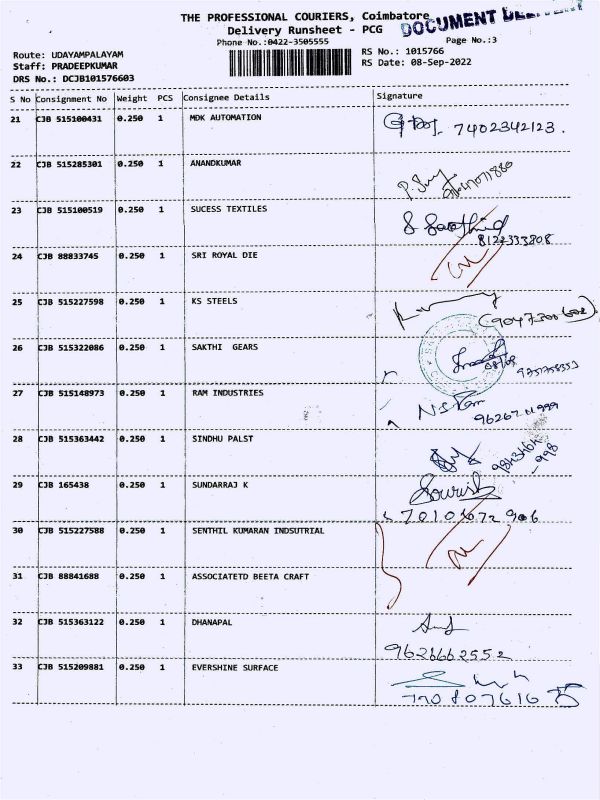 THE PROFESSIONAL COURIERS, Coimbatore
DOCUMENT DELIVERY
Delivery Runsheet - PCG
Phone No.:0422-3505555
Page No.:3
Route: UDAYAMPALAYAM
RS No.: 1015766
Staff: PRADEEPKUMAR
RS Date: 08-Sep-2022
DRS No.: DCJB101576603
S No Consignment No Weight PCS Consignee Details Signature
21 CJB 515100431 0.250 1 MDK AUTOMATION
7402342123.
22 CJB 515285301 0.250 1 ANANDKUMAR
23 CJB 515100519 0.250 1 SUCESS TEXTILES
8122333808
24 CJB 88833745 0.250 1 SRI ROYAL DIE
25 CJB 515227598 0.250 1 KS STEELS
26 CJB 515322086 0.250 1 SAKTHI GEARS
27 CJB 515148973 0.250 1 RAM INDUSTRIES
28 CJB 515363442 0.250 1 SINDHU PALST
29 CJB 165438 0.250 1 SUNDARRAJ K
30 CJB 515227588 0.250 1 SENTHIL KUMARAN INDSUTRIAL
31 CJB 88841688 0.250 1 ASSOCIATETD BEETA CRAFT
32 CJB 515363122 0.250 1 DHANAPAL
9626662552
33 CJB 515209881 0.250 1 EVERSHINE SURFACE